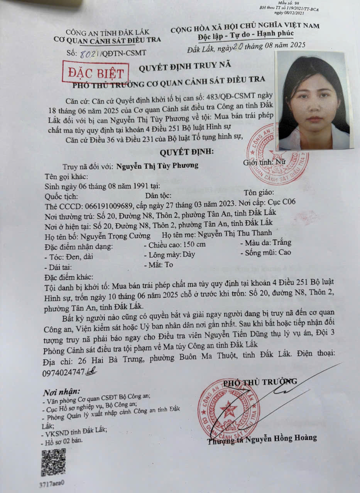 CÔNG AN TỈNH ĐẮK LẮK
CƠ QUAN CẢNH SÁT ĐIỀU TRA
Số: 8021/QĐTN-CSMT
CỘNG HÒA XÃ HỘI CHỦ NGHĨA VIỆT NAM
Độc lập - Tự do - Hạnh phúc
Đắk Lắk, ngày 20 tháng 08 năm 2025
ĐẶC BIỆT
QUYẾT ĐỊNH TRUY NÃ
PHÓ THỦ TRƯỞNG CƠ QUAN CẢNH SÁT ĐIỀU TRA
Căn cứ: Căn cứ Quyết định khởi tố bị can số: 483/QĐ-CSMT ngày
18 tháng 06 năm 2025 của Cơ quan Cảnh sát điều tra Công an tỉnh Đắk
Lắk đối với bị can Nguyễn Thị Tùy Phương về tội: Mua bán trái phép
chất ma túy quy định tại khoản 4 Điều 251 Bộ luật Hình sự
Căn cứ Điều 36 và Điều 231 của Bộ luật Tố tụng hình sự,
QUYẾT ĐỊNH:
Truy nã đối với: Nguyễn Thị Tùy Phương
Giới tính: Nữ
Tên gọi khác:
Sinh ngày 06 tháng 08 năm 1991 tại:
Quốc tịch: Dân tộc: Tôn giáo:
Thẻ CCCD: 066191009689, cấp ngày 27 tháng 03 năm 2023. Nơi cấp: Cục C06
Nơi thường trú: Số 20, Đường N8, Thôn 2, phường Tân An, tỉnh Đắk Lắk
Nơi ở hiện tại: Số 20, Đường N8, Thôn 2, phường Tân An, tỉnh Đắk Lắk
Họ tên bố: Nguyễn Trọng Cường Họ tên mẹ: Nguyễn Thị Thu Thanh
Đặc điểm nhận dạng: - Chiều cao: 150 cm - Màu da: Trắng
- Tóc: Đen, dài - Lông mày: Dày - Sống mũi: Cao
- Dái tai: - Mắt: To
Đặc điểm khác:
Tội danh bị khởi tố: Mua bán trái phép chất ma túy quy định tại khoản 4 Điều 251 Bộ luật
Hình sự, trốn ngày 10 tháng 06 năm 2025 chỗ ở trước khi trốn: Số 20, Đường N8, Thôn 2,
phường Tân An, tỉnh Đắk Lắk.
Bất kỳ người nào cũng có quyền bắt và giải ngay người đang bị truy nã đến cơ quan
Công an, Viện kiểm sát hoặc Uỷ ban nhân dân nơi gần nhất. Sau khi bắt hoặc tiếp nhận đối
tượng truy nã phải báo ngay cho Điều tra viên Nguyễn Tiến Dũng thụ lý vụ án, Đội 3
Phòng Cảnh sát điều tra tội phạm về Ma túy Công an tỉnh Đắk Lắk.
Địa chỉ: 26 Hai Bà Trưng, phường Buôn Ma Thuột, tỉnh Đắk Lắk. Điện thoại:
0974024747
Nơi nhận:
- Văn phòng Cơ quan CSĐT Bộ Công an;
- Cục Hồ sơ nghiệp vụ, Bộ Công an;
- Phòng Quản lý xuất nhập cảnh Công an tỉnh Đắk
Lắk;
- VKSND tỉnh Đắk Lắk;
- Hồ sơ 02 bản.
PHÓ THỦ TRƯỞNG
Thượng tá Nguyễn Hồng Hoàng